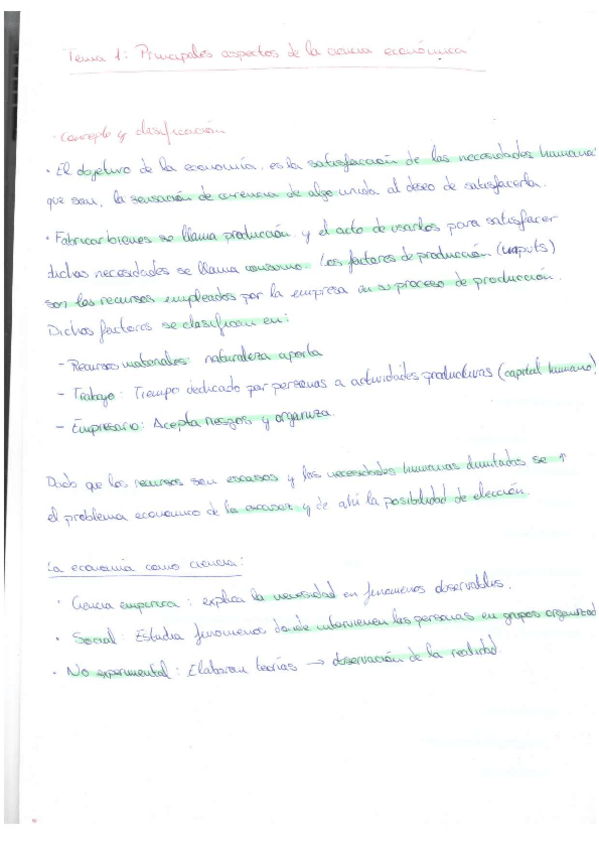 Tema 1: Principales aspectos de la ciencia económica
- Concepto y clasificación
· El objetivo de la economía, es la satisfacción de las necesidades humanas
que son, la sensación de carencia de algo unida al deseo de satisfacerla.
· Fabricar bienes se llama producción, y el acto de usarlos para satisfacer
dichas necesidades se llama consumo. Los factores de producción (inputs)
son los recursos empleados por la empresa en su proceso de producción.
Dichos factores se clasifican en:
- Recursos materiales: naturaleza aporta
- Trabajo: Tiempo dedicado por personas a actividades productivas (capital humano)
- Empresario: Acepta riesgos y organiza.
Dado que los recursos son escasos y las necesidades humanas ilimitadas se ↑
el problema economico de la escasez y de ahí la posibilidad de elección.
La economía como ciencia:
· Ciencia empírica: explica la necesidad en fenomenos observables.
· Social: Estudia fenomenos donde intervienen las personas en grupos organizad
· No experimental: Elaboran teorías → observación de la realidad.